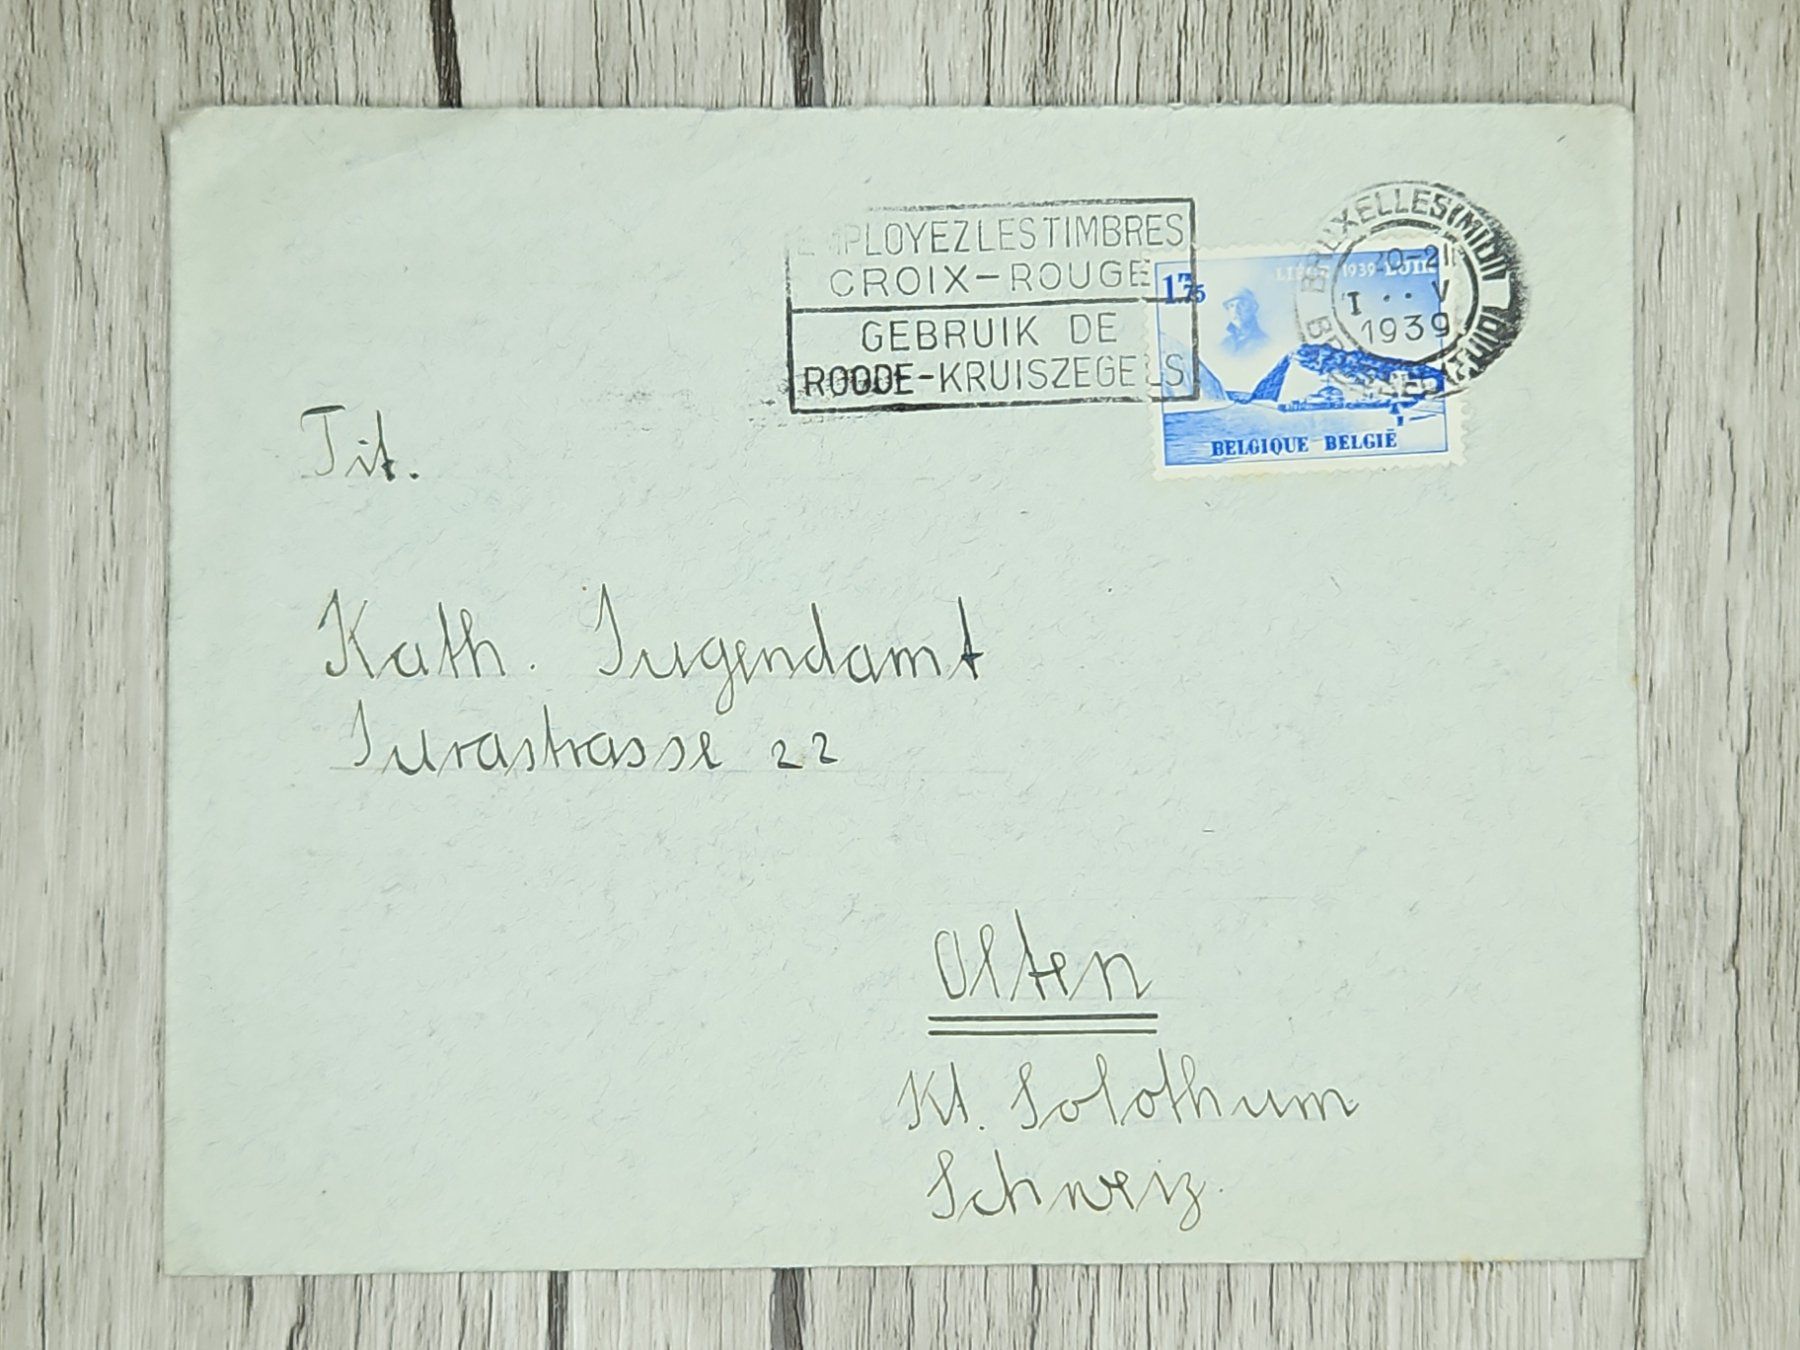 EMPLOYEZ LES TIMBRES
CROIX-ROUGE
GEBRUIK DE
ROODE-KRUISZEGELS
BRUXELLES (MIDI)
20-21
I .. V
1939
1.75
1939 LUIK
BELGIQUE BELGIË
Tit.
Kath. Jugendamt
Jurastrasse 22
Olten
Kt. Solothurn
Schweiz.